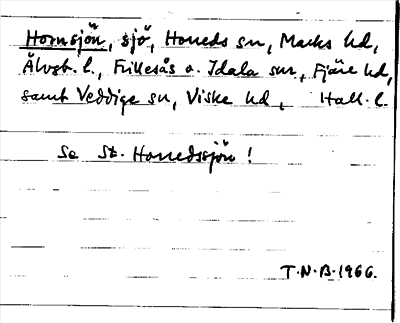 Hornsjön, sjö, Horreds sn, Marks hd,
Älvsb. l., Frillesås o. Idala snr, Fjäre hd,
samt Veddige sn, Viske hd, Hall. l.
Se St. Horredssjön!
T.N.B. 1966.